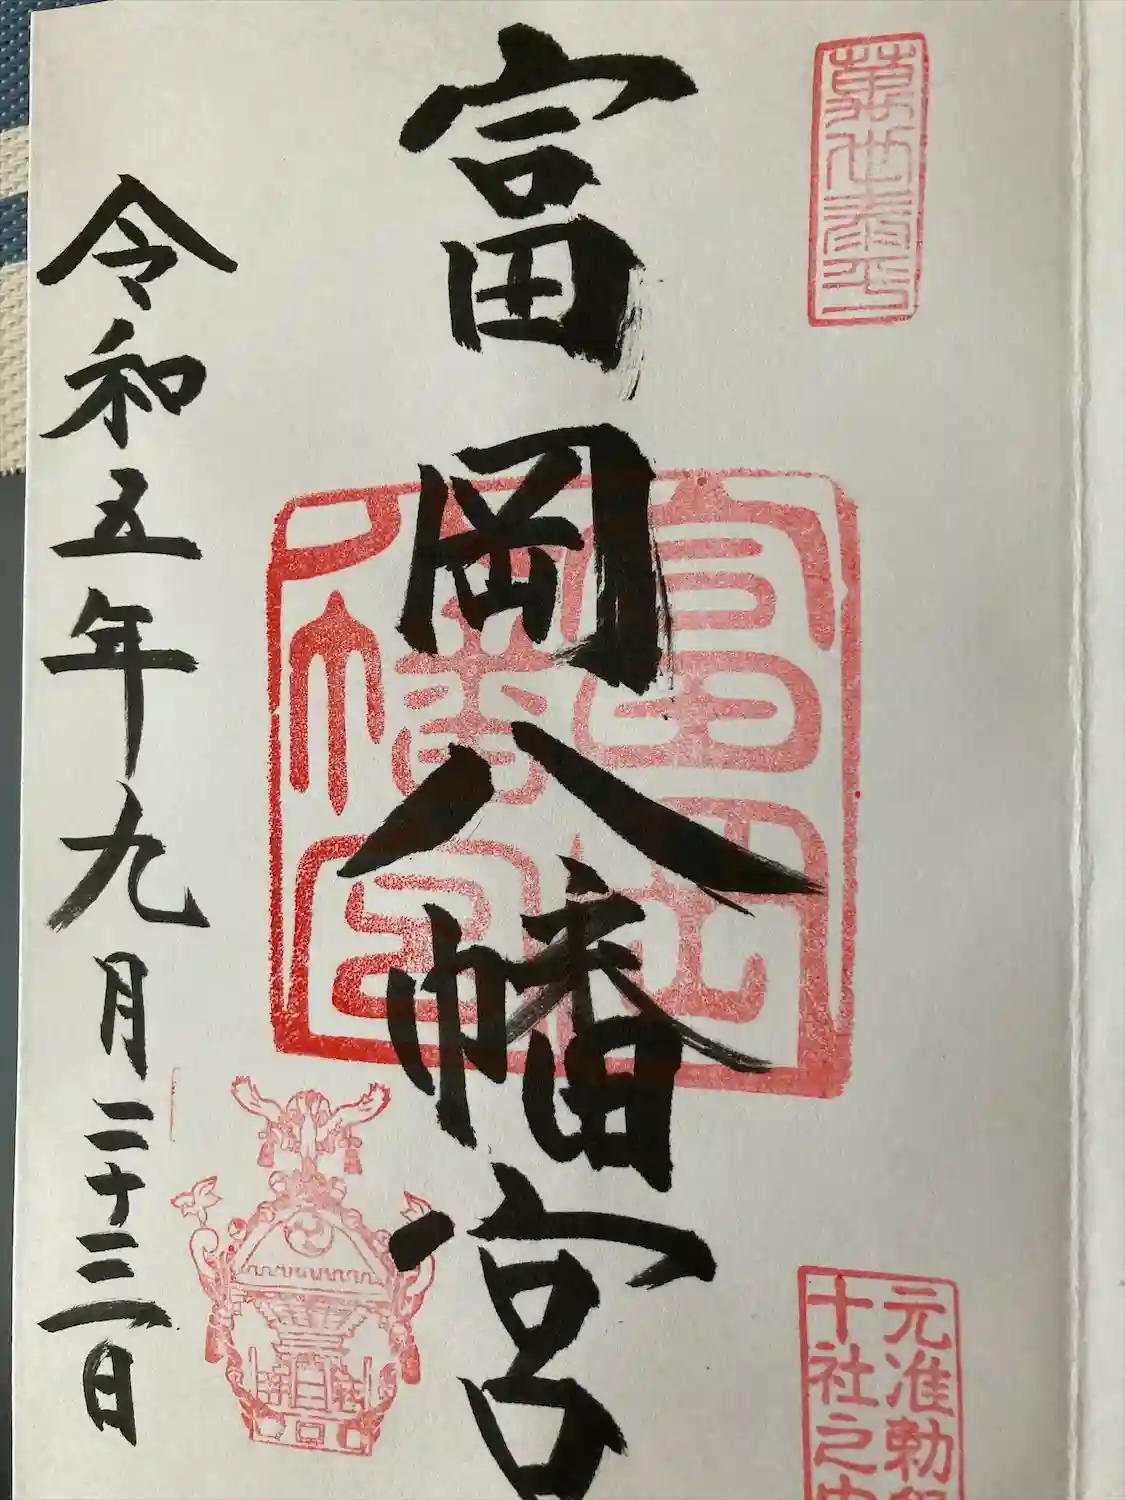 萬世泰平
元准勅
十社之
富岡八幡宮
富岡
八幡宮
令和五年九月二十三日